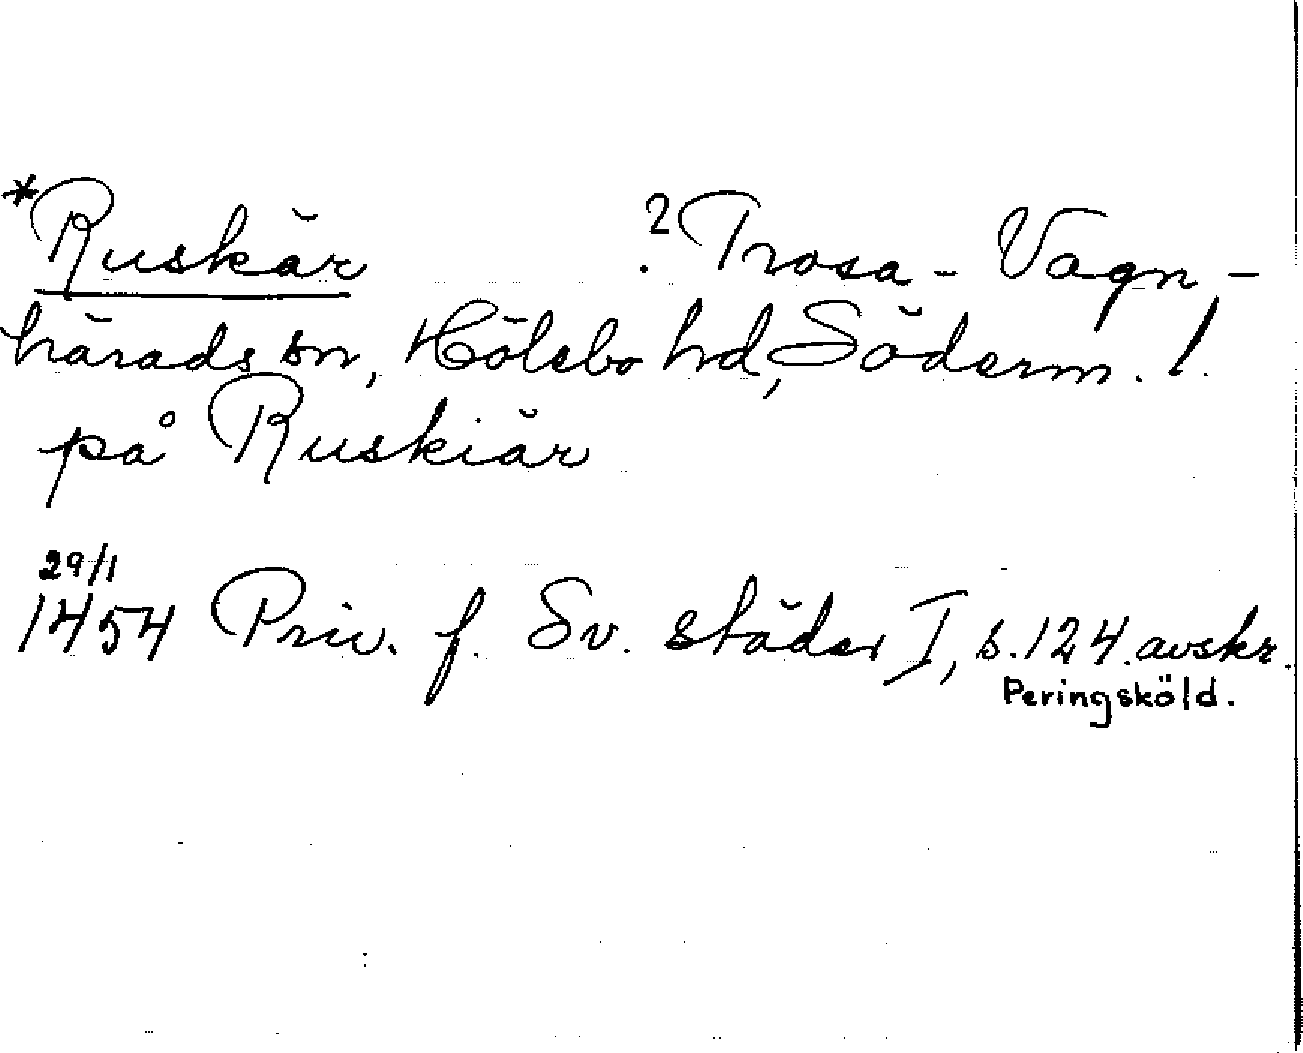 *Ruskär ? Trosa-Vagn-
härads sn, Hölebo hd, Söderm. l.
på Ruskiär
29/1
1454 Priv. f. Sv. städer I, s. 124. avskr.
Peringsköld.